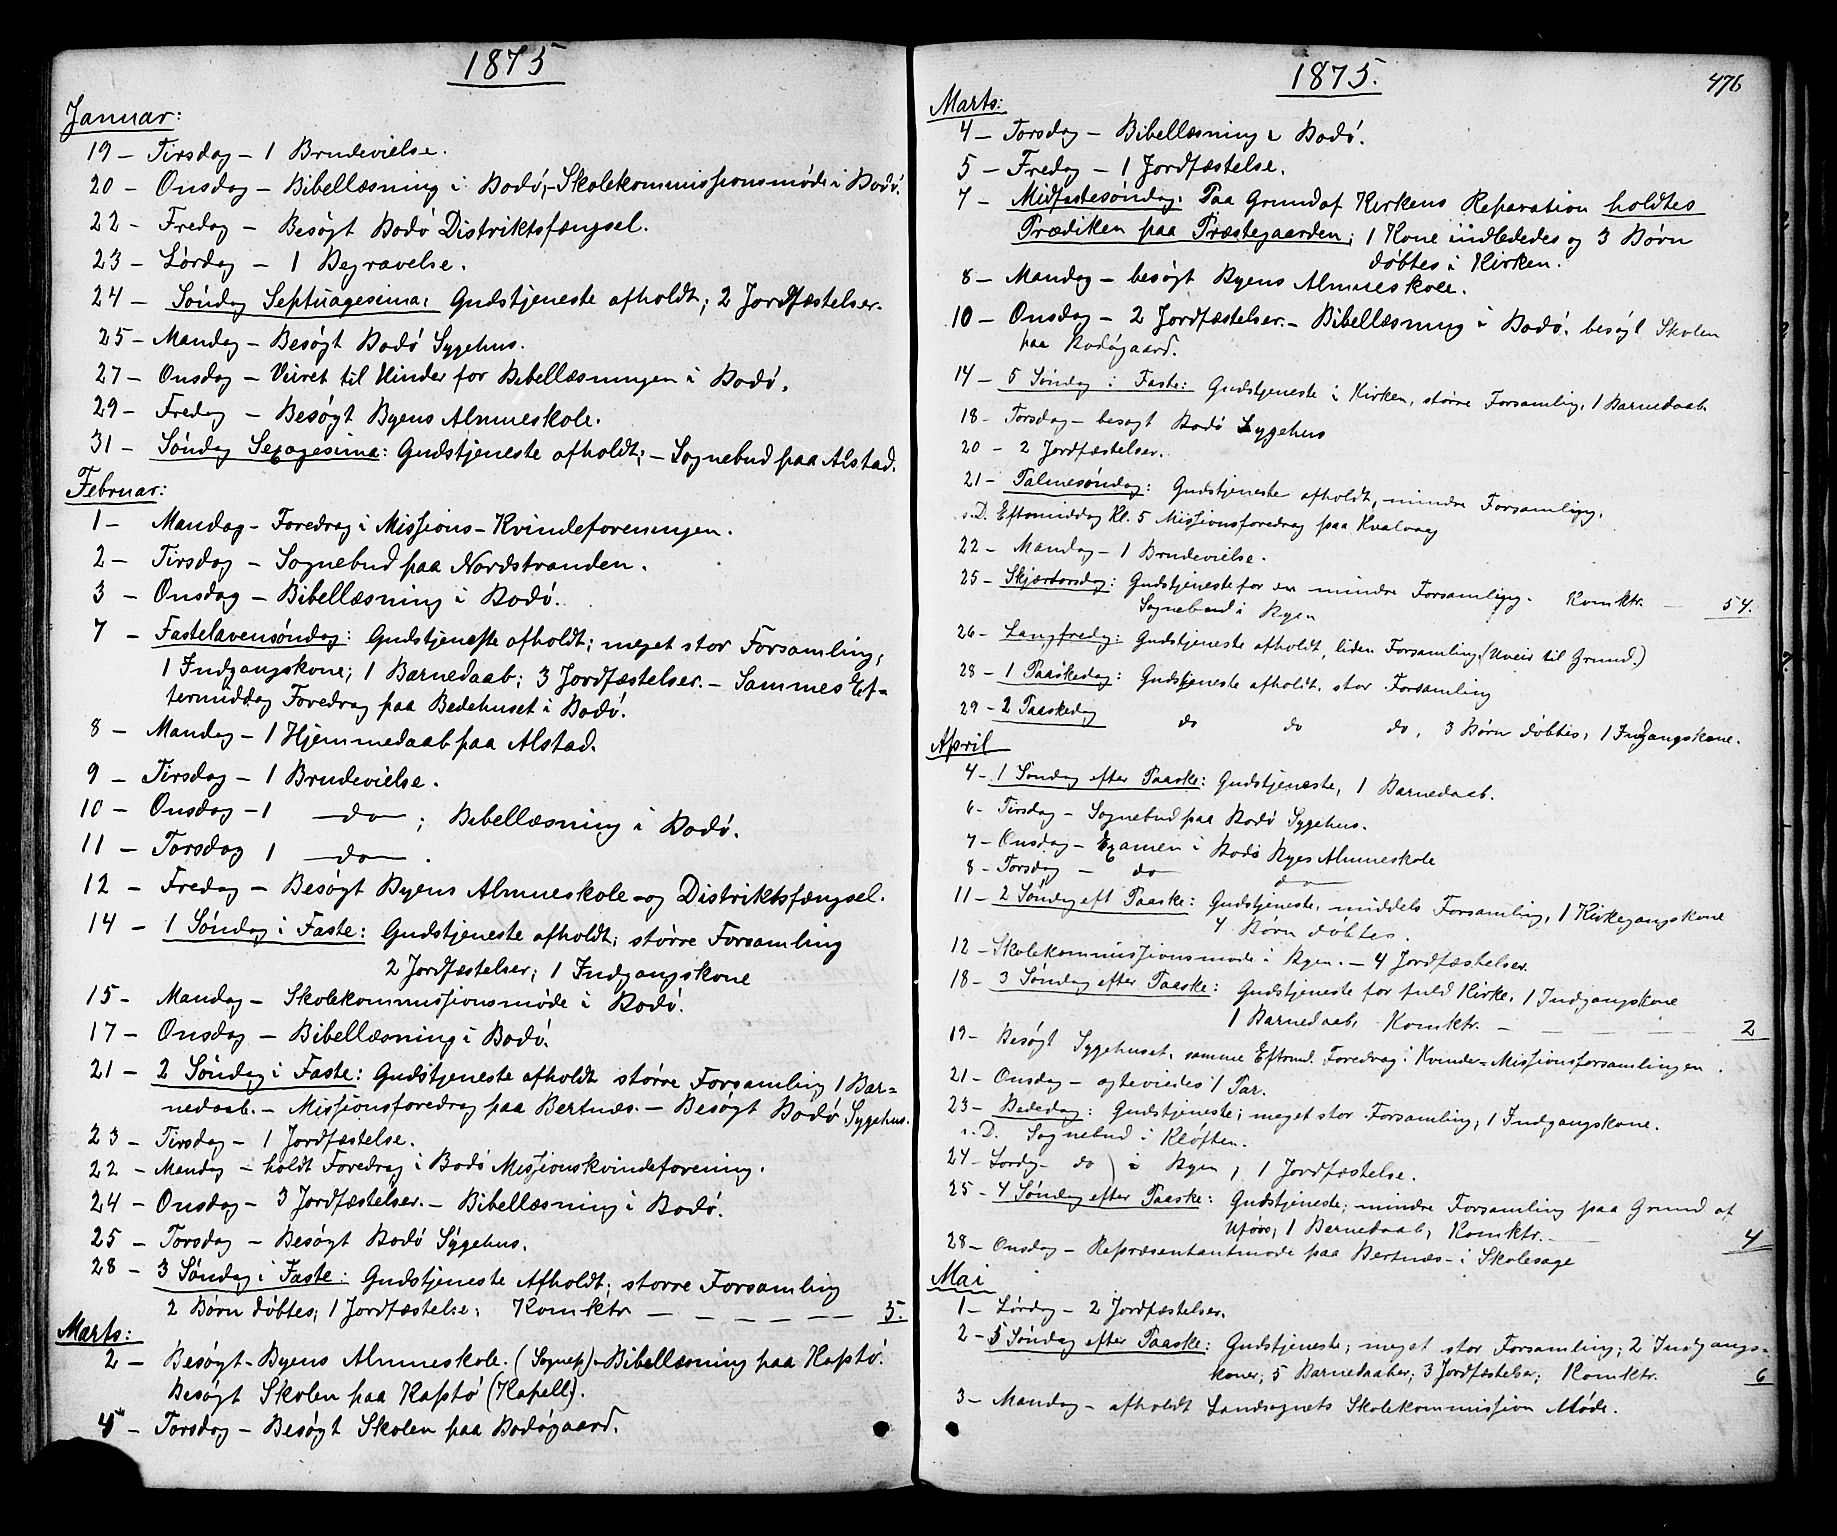 1875
Januar:
19 – Tirsdag – 1 Brudevielse.
20 – Onsdag – Bibellæsning i Bodø, – Skolekommissionsmøde i Bodø.
22 – Fredag – Besøgt Bodø Distriktsfængsel.
23 – Lørdag – 1 Begravelse.
24 – Søndag Septuagesima: Gudstjeneste afholdt; 2 Jordfæstelser.
25 – Mandag – Besøgt Bodø Sygehus.
27 – Onsdag – Veiret til Hinder for Bibellæsningen i Bodø.
29 – Fredag – Besøgt Byens Almueskole.
31 – Søndag Sexagesima: Gudstjeneste afholdt; – Sognebud paa Alstad.
Februar:
1 – Mandag – Foredrag i Missions-Kvindeforeningen.
2 – Tirsdag – Sognebud paa Nordstranden.
3 – Onsdag – Bibellæsning i Bodø.
7 – Fastelavensøndag: Gudstjeneste afholdt; meget stor Forsamling;
1 Indgangskone; 1 Barnedaab; 3 Jordfæstelser. – Sammes Ef-
termiddag Foredrag paa Bedehuset i Bodø.
8 – Mandag – 1 Hjemmedaab paa Alstad.
9 – Tirsdag – 1 Brudevielse.
10 – Onsdag – 1 do ; Bibellæsning i Bodø.
11 – Torsdag 1 do .
12 – Fredag – Besøgt Byens Almueskole – og Distriktsfængsel.
14 – 1 Søndag i Faste: Gudstjeneste afholdt; større Forsamling
2 Jordfæstelser; 1 Indgangskone
15 – Mandag – Skolekommissionsmøde i Bodø.
17 – Onsdag – Bibellæsning i Bodø.
21 – 2 Søndag i Faste: Gudstjeneste afholdt større Forsamling 1 Bar-
nedaab. – Missionsforedrag paa Bertnæs. – Besøgt Bodø Sygehus.
23 – Tirsdag – 1 Jordfæstelse.
22 – Mandag – holdt Foredrag i Bodø Missionskvindeforening.
24 – Onsdag – 3 Jordfæstelser. – Bibellæsning i Bodø.
25 – Torsdag – Besøgt Bodø Sygehus.
28 – 3 Søndag i Faste: Gudstjeneste Afholdt; større Forsamling
2 Børn døbtes; 1 Jordfæstelse; Komktr – – – – – 5.
Marts:
2 – Besøgt – Byens Almueskole. – Bibellæsning paa Kaptø.
Besøgt Skolen paa Kaptø (Kapell).
4 – Torsdag – Besøgt Skolen paa Bodøgaard.
1875.
476
Marts:
4 – Torsdag – Bibellæsning i Bodø.
5 – Fredag – 1 Jordfæstelse.
7 – Midfastesøndag: Paa Grund af Kirkens Reparation holdtes
Prædiken paa Præstegaarden; 1 Kone indlededes og 3 Børn
døbtes i Kirken.
8 – Mandag – besøgt Byens Almueskole.
10 – Onsdag – 2 Jordfæstelser. – Bibellæsning i Bodø. besøgt Skolen
paa Bodøgaard.
14 – 5 Søndag i Faste: Gudstjeneste i Kirken, større Forsamling, 1 Barnedaab.
18 – Torsdag – besøgt Bodø Sygehus
20 – 2 Jordfæstelser.
21 – Palmesøndag: Gudstjeneste afholdt, mindre Forsamling.
s. D. Eftermiddag Kl. 5 Missionsforedrag paa Kvalvaag
22 – Mandag – 1 Brudevielse.
25 – Skjærtorsdag: Gudstjeneste for en mindre Forsamling. Komktr. – 54.
Sognebud i Byen
26 – Langfredg: Gudstjeneste afholdt, liden Forsamling. (Uveir til Grund.)
28 – 1 Paaskedag: Gudstjeneste afholdt, stor Forsamling
29 – 2 Paaskedag do do do, 3 Børn døbtes, 1 Indgangskone.
April
4 – 1 Søndag efter Paaske: Gudstjeneste, 1 Barnedaab.
6 – Tirsdag – Sognebud paa Bodø Sygehus.
7 – Onsdag – Examen i Bodø Byes Almueskole
8 – Torsdag – do do
11 – 2 Søndag eft Paaske: Gudstjeneste, middels Forsamling, 1 Kirkegangskone
4 Børn døbtes.
12 – Skolekommissionsmøde i Byen. – 4 Jordfæstelser.
18 – 3 Søndag efter Paaske: Gudstjeneste for fuld Kirke, 1 Indgangskone
1 Barnedaab, Komktr. – – – – – 2
19 – Besøgt Sygehuset, samme Eftmd. Foredrag i Kvinde-Missionsforsamlingen.
21 – Onsdag – ægteviedes 1 Par.
23 – Bededag: Gudstjeneste; meget stor Forsamling, 1 Indgangskone.
s. D. Sognebud i Kløften.
24 – Lørdg – do i Byen, 1 Jordfæstelse.
25 – 4 Søndag efter Paaske: Gudstjeneste; mindre Forsamling paa Grund af
Uføre, 1 Barnedaab, Komktr. – – 4
28 – Onsdag – Repræsentantmøde paa Bertnæs – i Skolesage
Mai
1 – Lørdag – 2 Jordfæstelser.
2 – 5 Søndag efter Paaske: Gudstjeneste; meget stor Forsamling; 2 Indgangs-
koner; 5 Barnedaaber; 3 Jordfæstelser; Komktr. 6
3 – Mandag – afholdt Landsognets Skolekommission Møde.